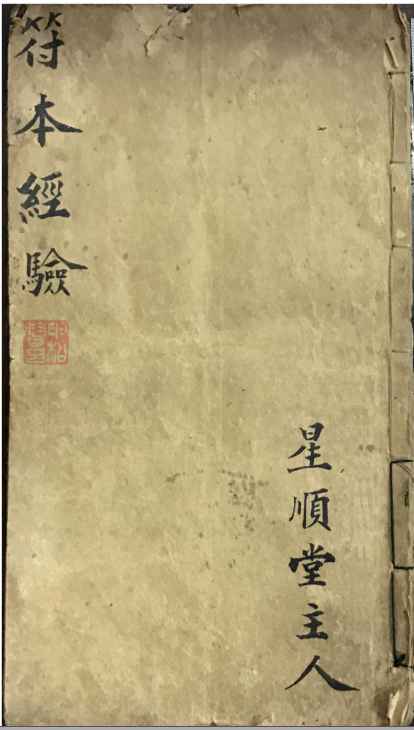 符本經驗
星順堂主人